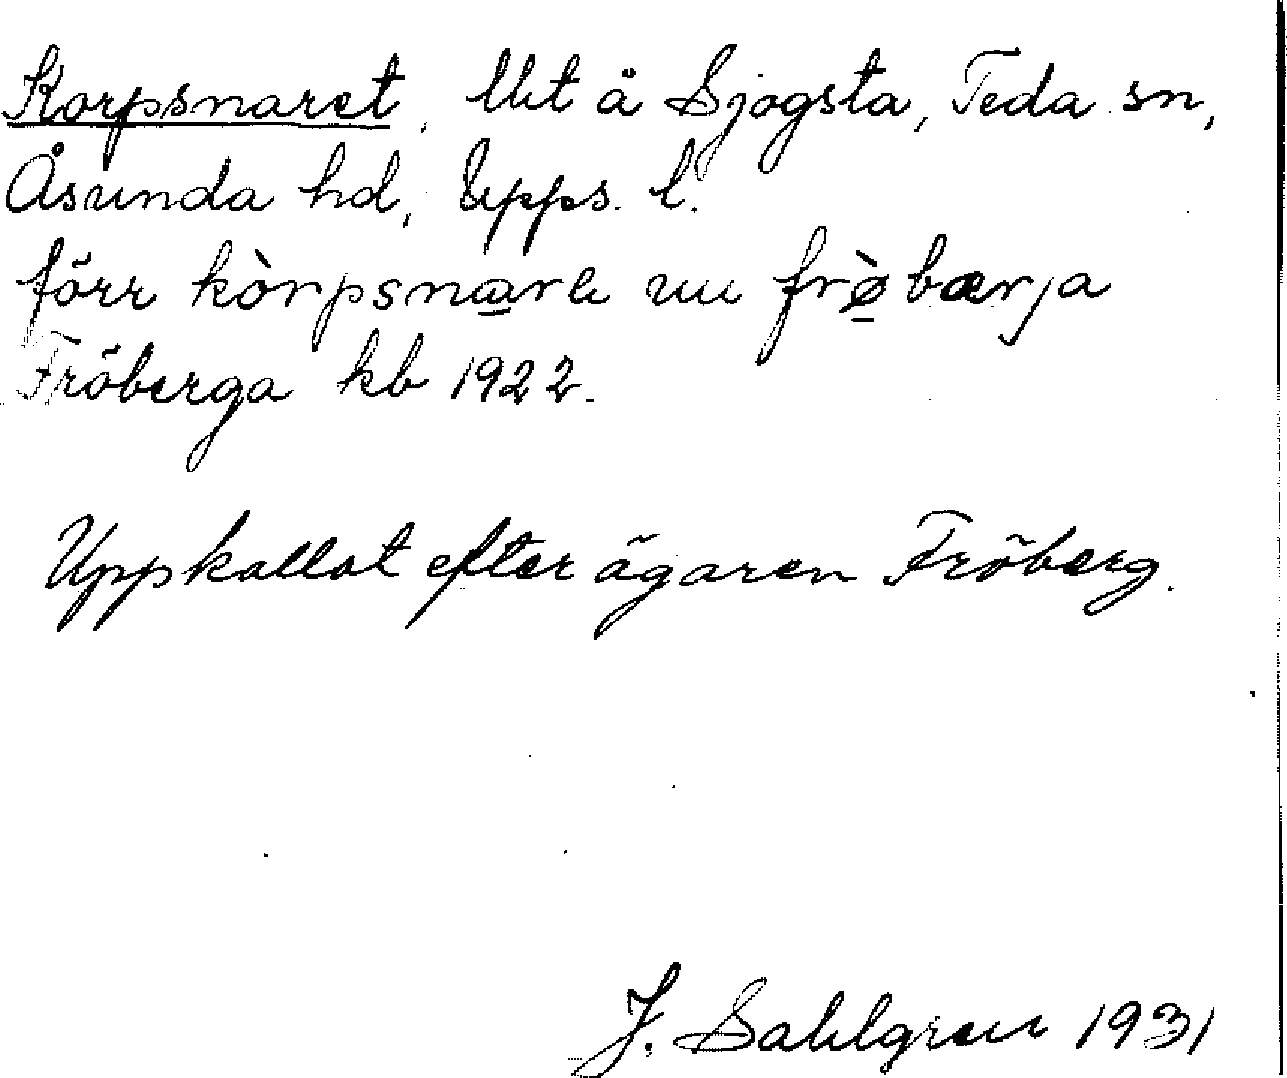 Korpsnaret, llht å Sjogsta, Teda sn,
Åsunda hd, Upps. l.
förr kòrpsnarɘ nu frø̀bærja
Fröberga kb 1922.
Uppkallat efter ägaren Fröberg.
J. Sahlgren 1931